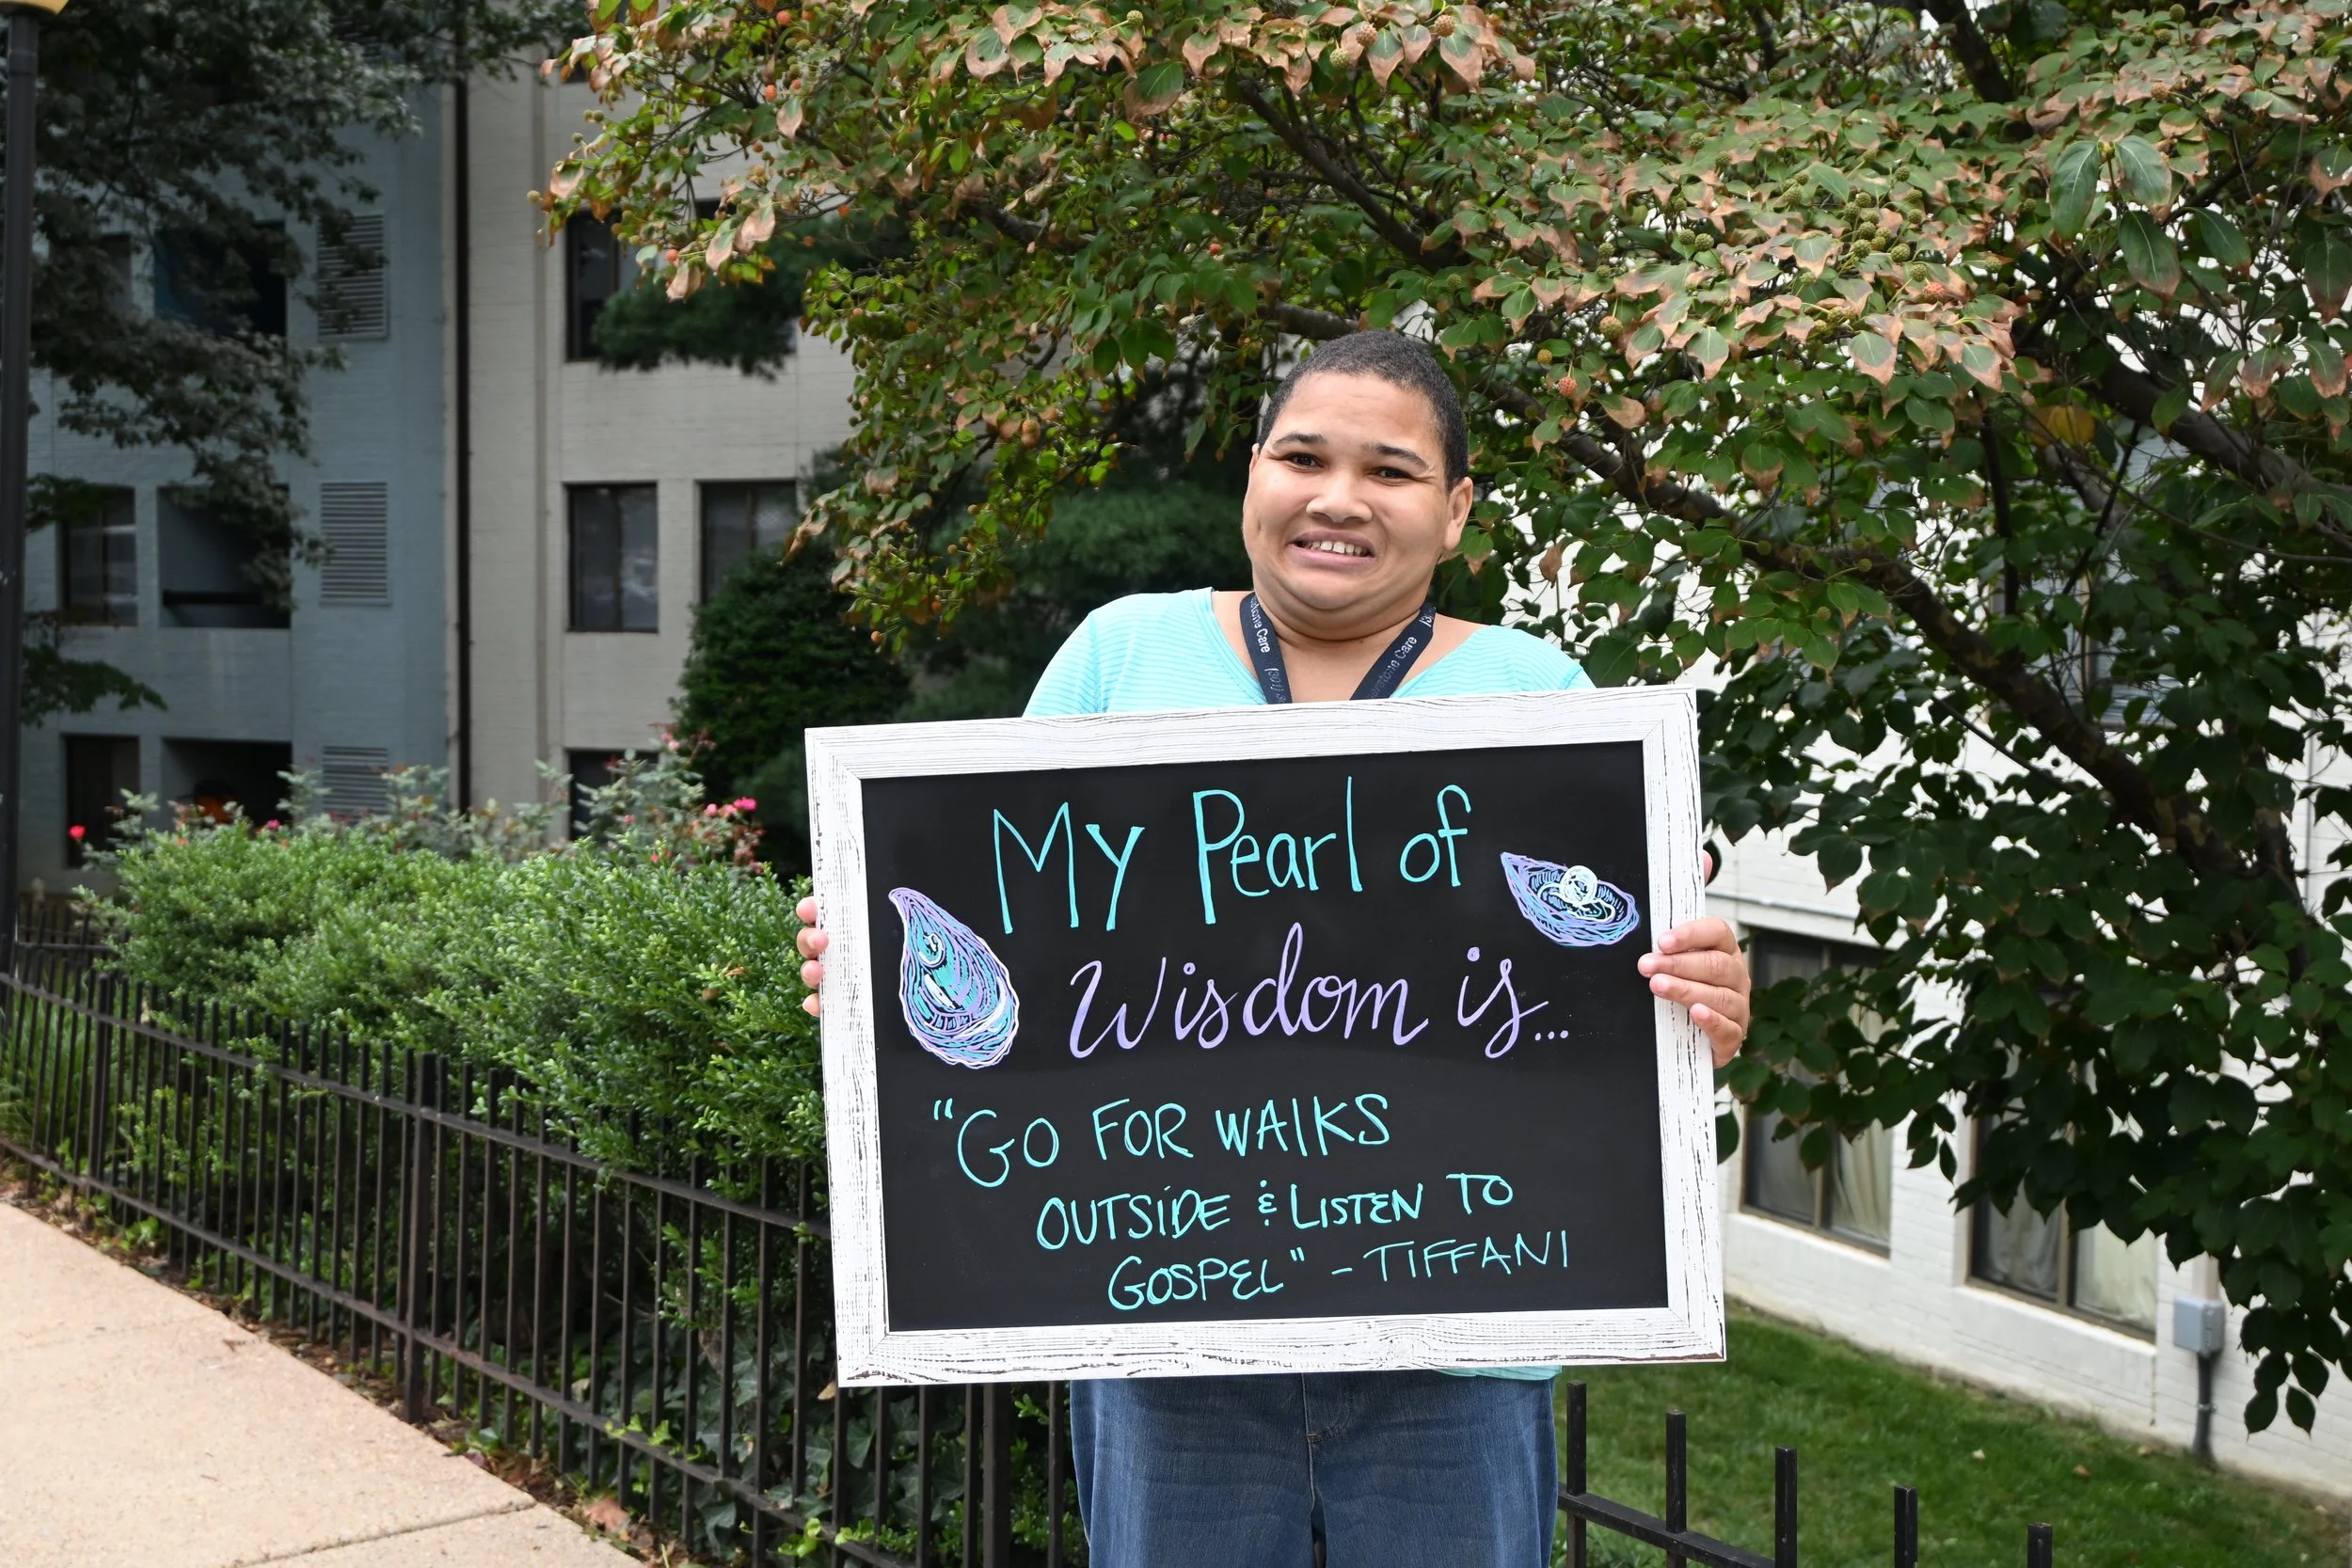 My Pearl of
Wisdom is...
"GO FOR WALKS
OUTSIDE & LISTEN TO
GOSPEL" - TIFFANI